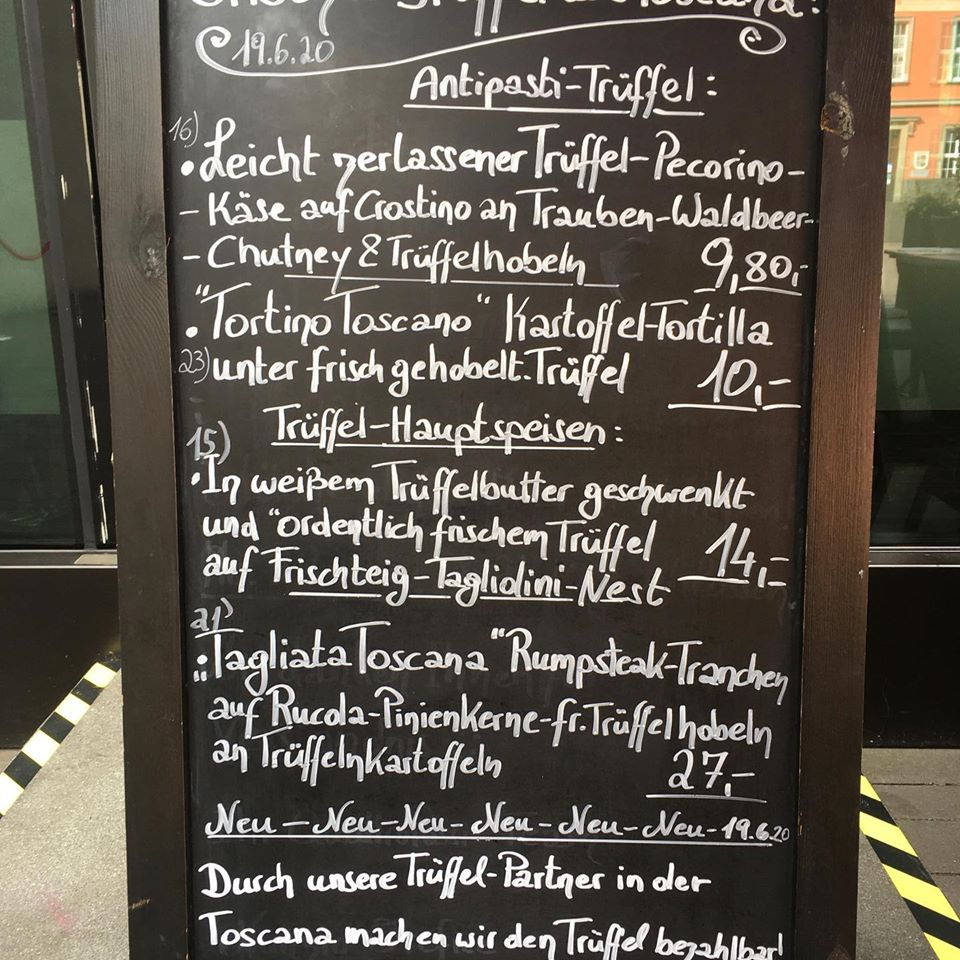 Toscana!
19.6.20
Antipasti-Trüffel:
16)
• Leicht zerlassener Trüffel-Pecorino-
- Käse auf Crostino an Trauben-Waldbeer-
- Chutney & Trüffelhobeln 9,80,-
• "Tortino Toscano" Kartoffel-Tortilla
23) unter frisch gehobelt. Trüffel 10,-
Trüffel-Hauptspeisen:
15)
• In weißem Trüffelbutter geschwenkt
und "ordentlich frischem Trüffel 14,-
auf Frischteig-Tagliolini-Nest
21)
: Tagliata Toscana "Rumpsteak-Tranchen
auf Rucola-Pinienkerne-fr. Trüffelhobeln
an Trüffelnkartoffeln 27,-
Neu - Neu - Neu - Neu - Neu - Neu - 19.6.20
Durch unsere Trüffel-Partner in der
Toscana machen wir den Trüffel bezahlbar!